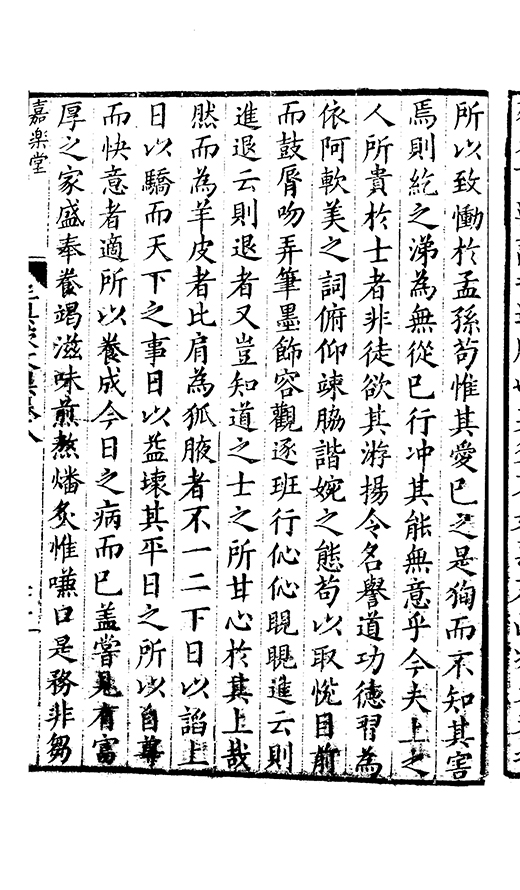 所以致慟於孟孫苟惟其愛已之是狥而不知其害
焉則紇之涕為無從已行冲其能無意乎今夫上之
人所貴於士者非徒欲其游揚令名譽道功德習為
依阿軟美之詞俯仰竦脇諧婉之態苟以取悅目前
而鼓脣吻弄筆墨飾容觀逐班行伈伈睍睍進云則
進退云則退者又豈知道之士之所甘心於其上哉
然而為羊皮者比肩為狐腋者不一二下日以謟上
日以驕而天下之事日以益壊其平日之所以自幸
而快意者適所以養成今日之病而已盖嘗見有富
厚之家盛奉養竭滋味煎熬燔炙惟嗛口是務非芻
嘉楽堂